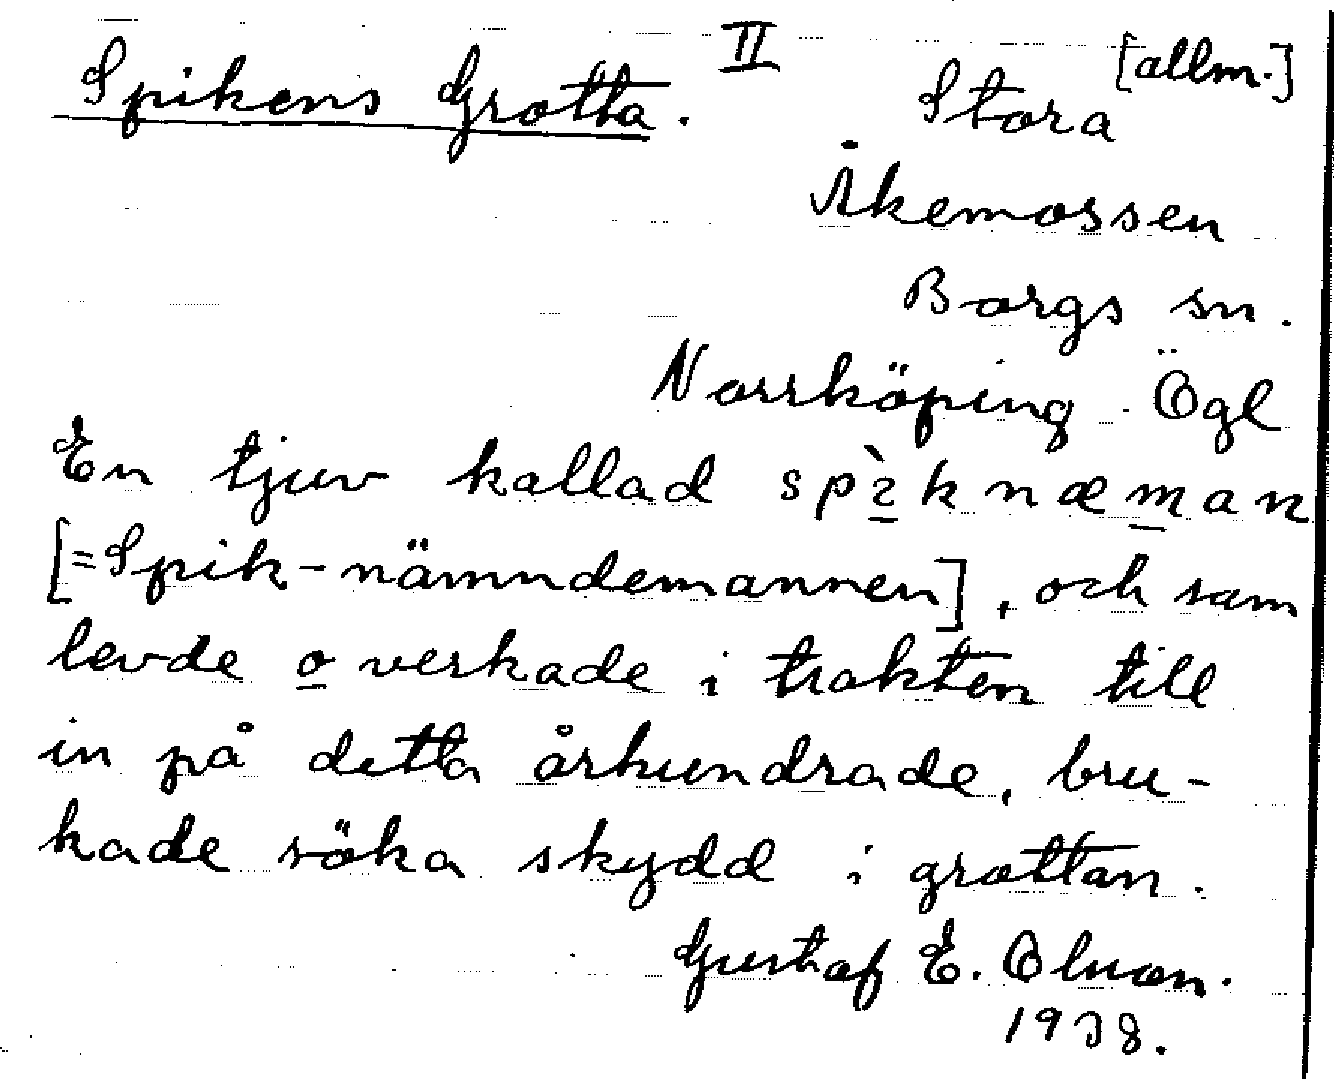 Spikens Grotta. II Stora [allm.]
Åkemossen
Borgs sn.
Norrköping Ögl
En tjuv kallad
[=Spik-nämndemannen], och som
levde o verkade i trakten till
in på detta århundrade, bru-
kade söka skydd i grottan.
Gustaf E. Olsson.
1938.